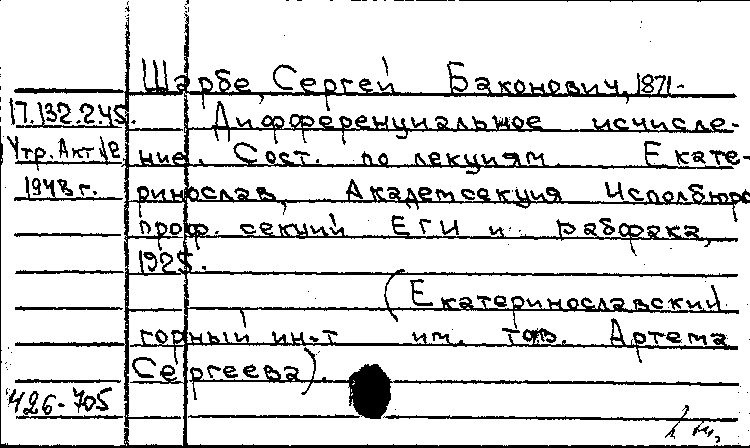 Шарбе, Сергей Баконович, 1871-
17.132.245. Дифференциальное исчисле-
Утр. Акт №2 ние. Сост. по лекциям. Екате-
1948 г. ринослав, Академсекция Исполбюро
проф. секций ЕГИ и рабфака,
1925.
(Екатеринославский
горный ин-т им. тов. Артема
Сергеева).
426-705